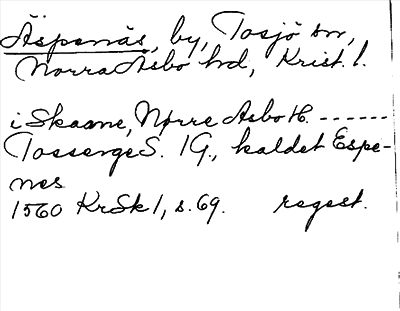 Äspenäs, by, Tosjö sn,
Norra Åsbo hd, Krist. l.
i Skaane, Nørre Asbo H. ------
Tosserge S. 1 G., kaldet Espe-
nes
1560 KrSk 1, s. 69. regest.